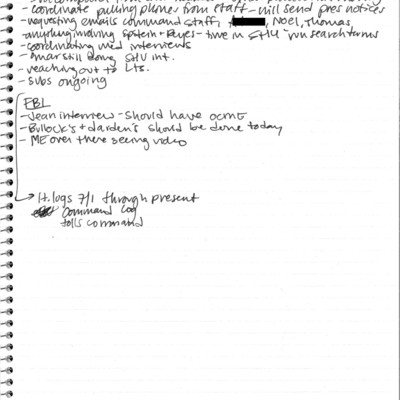 - coordinate pulling phones from staff - will send pres notices
- requesting emails command staff, Noel, Thomas,
anything involving system + Reyes - time in SHU - run search terms
- coordinating med interviews
- Omar still doing SHU int.
- reaching out to Lts.
- subs ongoing
FBI
- Jean interview - should have ocmt
- Bullock's + darden's should be done today
- ME over there seeing video
→ lt. logs 7/1 through present
command log
tolls command